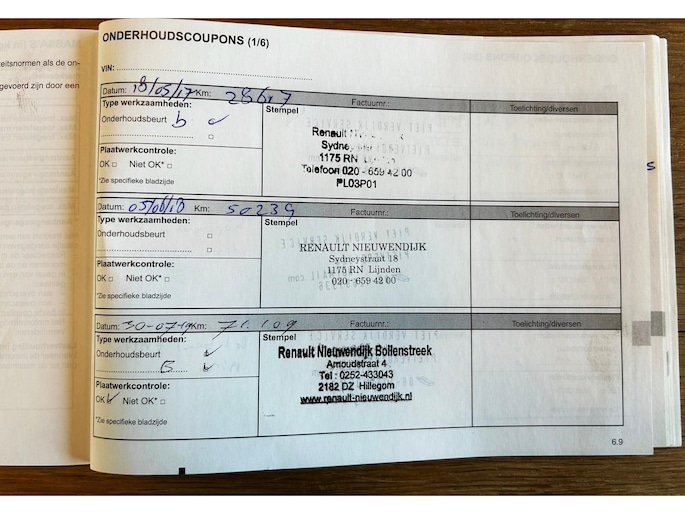 eitsnormen als de on-
gevoerd zijn door een
ONDERHOUDSCOUPONS (1/6)
VIN:
Datum: 18/05/17 Km: Factuurnr.: Toelichting/diversen
Type werkzaamheden: Stempel
Onderhoudsbeurt b
Renault
1175 RN
Telefoon 020 - 659 42 00
PL03P01
Plaatwerkcontrole:
OK Niet OK*
*Zie specifieke bladzijde
Datum: 05/06/18 Km: 50239 Factuurnr.: Toelichting/diversen
Type werkzaamheden: Stempel
Onderhoudsbeurt
RENAULT NIEUWENDIJK
Sydneystraat 18
1175 RN Lijnden
020 - 659 42 00
Plaatwerkcontrole:
OK Niet OK*
*Zie specifieke bladzijde
Datum: 30-07-19 Km: 71.109 Factuurnr.: Toelichting/diversen
Type werkzaamheden: Stempel
Onderhoudsbeurt
Renault Nieuwendijk Bollenstreek
Arnoudstraat 4
Tel : 0252-433043
2182 DZ Hillegom
www.renault-nieuwendijk.nl
Plaatwerkcontrole:
OK Niet OK*
*Zie specifieke bladzijde
6.9